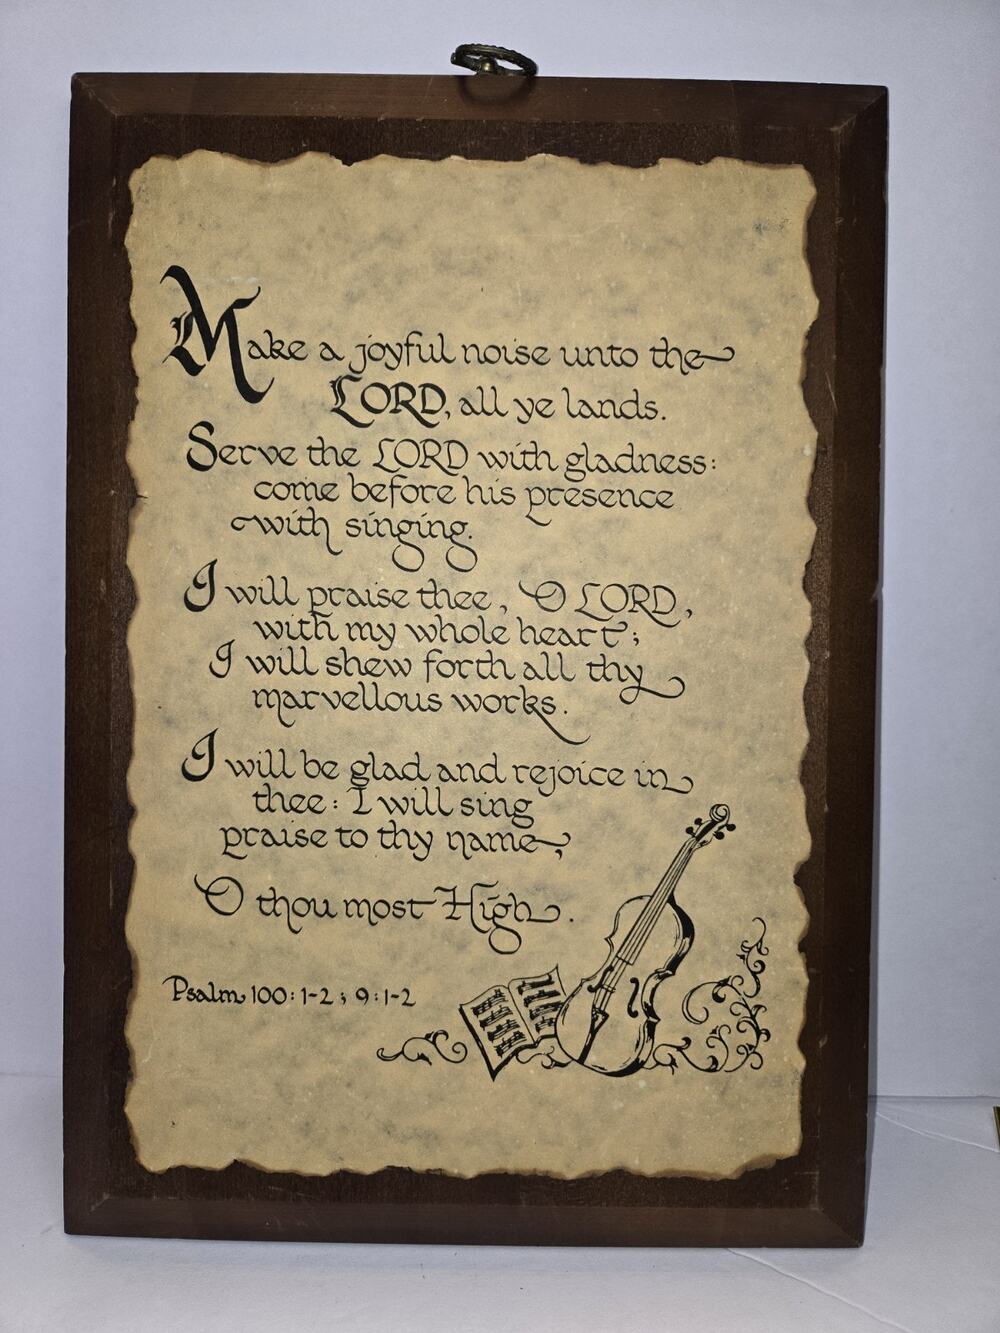 Make a joyful noise unto the
LORD, all ye lands.
Serve the LORD with gladness:
come before his presence
with singing.
I will praise thee, O LORD,
with my whole heart;
I will shew forth all thy
marvellous works.
I will be glad and rejoice in
thee: I will sing
praise to thy name,
O thou most High.
Psalm 100:1-2; 9:1-2